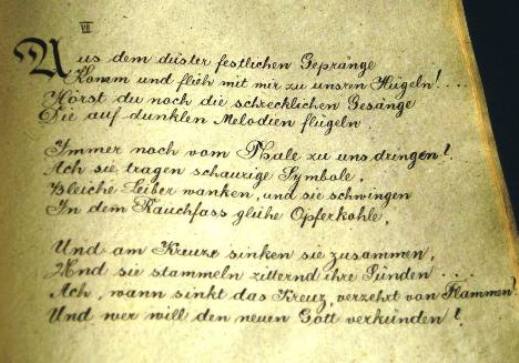 VII
Aus dem düster festlichen Gepränge
Komm und flieh mit mir zu unsren Hügeln! . . .
Hörst du noch die schrecklichen Gesänge
Die auf dunklen Melodien flügeln
Immer noch vom Thale zu uns dringen?
Ach sie tragen schaurige Symbole,
Bleiche Leiber wanken, und sie schwingen
In dem Rauchfass glühe Opferkohle,
Und am Kreuze sinken sie zusammen,
Und sie stammeln zitternd ihre Sünden . . .
Ach, wann sinkt das Kreuz, verzehrt von Flammen?
Und wer will den neuen Gott verkünden?